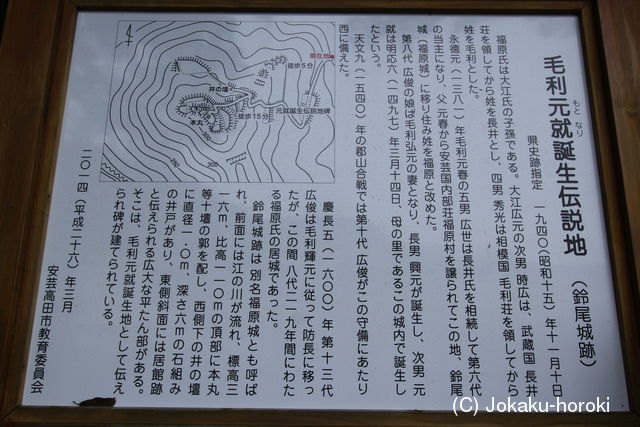 毛利元就誕生伝説地
もと なり
（鈴尾城跡）
県史跡指定　一九四〇（昭和十五）年十一月十日
福原氏は大江氏の子孫である。大江広元の次男 時広は、武蔵国 長井
荘を領してから姓を長井とし、四男 秀光は相模国 毛利荘を領してから
姓を毛利とした。
永徳元（一三八一）年毛利元春の五男 広世は長井氏を相続して第六代
の当主になり、父 元春から安芸国内部荘福原村を譲られてこの地、鈴尾
城（福原城）に移り住み姓を福原と改めた。
第八代 広俊の娘は毛利弘元の妻となり、長男 興元が誕生し、次男 元
就は明応六（一四九七）年三月十四日、母の里であるこの城内で誕生し
たという。
天文九（一五四〇）年の郡山合戦では第十代 広俊がこの守備にあたり
西に備えた。
慶長五（一六〇〇）年 第十三代
広俊は毛利輝元に従って防長に移っ
たが、この間 八代二一九年間にわた
る福原氏の居城であった。
鈴尾城跡は 別名福原城とも呼ば
れ、前面には江の川が流れ、標高三
一六m、比高一一〇mの頂部に本丸
等十壇の郭を配し、西側下の井の壇
に直径一・〇m、深さ六mの石組み
の井戸があり、東側斜面には居館跡
と伝えられる広大な平たん部がある。
そこは、毛利元就誕生地として伝え
られ碑が建てられている。
二〇一四（平成二十六）年三月
安芸高田市教育委員会
現在地
徒歩５分
井の壇
元就誕生伝説地碑
徒歩15分
本丸
300
250
300
(C) Jokaku-horoki